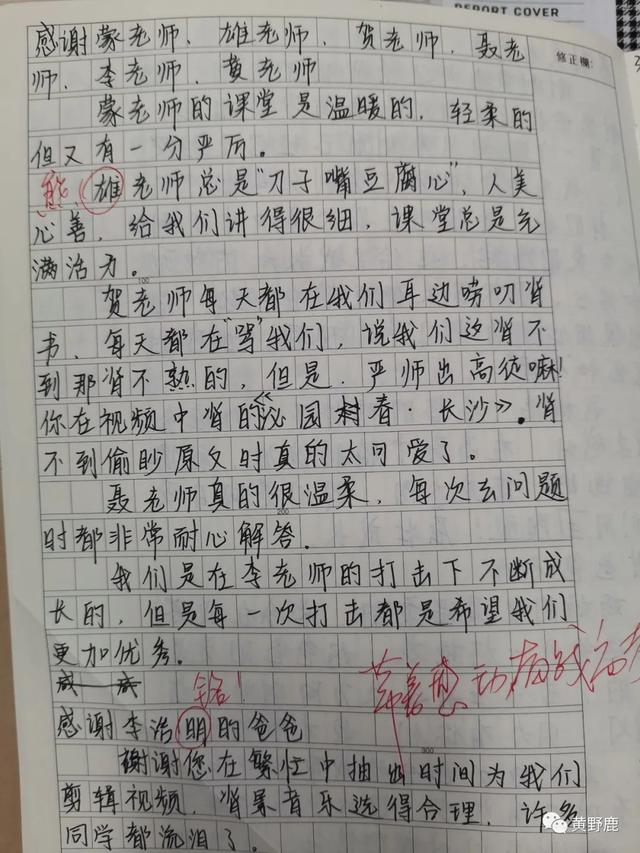 REPORT COVER
修正欄:
感谢蒙老师、雄老师、贺老师、聂老
师、李老师、黄老师
蒙老师的课堂是温暖的，轻柔的
但又有一分严厉。
熊 雄老师总是“刀子嘴豆腐心”，人美
心善，给我们讲得很细，课堂总是充
满活力。
100
贺老师每天都在我们耳边唠叨背
书，每天都在“骂”我们，说我们这背不
到那背不熟的，但是，严师出高徒嘛!
你在视频中背的《沁园春·长沙》，背
不到偷眇原文时真的太可爱了。
聂老师真的很温柔，每次去问题
200
时都非常耐心解答.
我们是在李老师的打击下不断成
长的，但是每一次打击都是希望我们
更加优秀.
感谢李浩明的爸爸
300
谢谢您在繁忙中抽出时间为我们
剪辑视频，背景音乐选得合理，许多
同学都流泪了。
黄野鹿